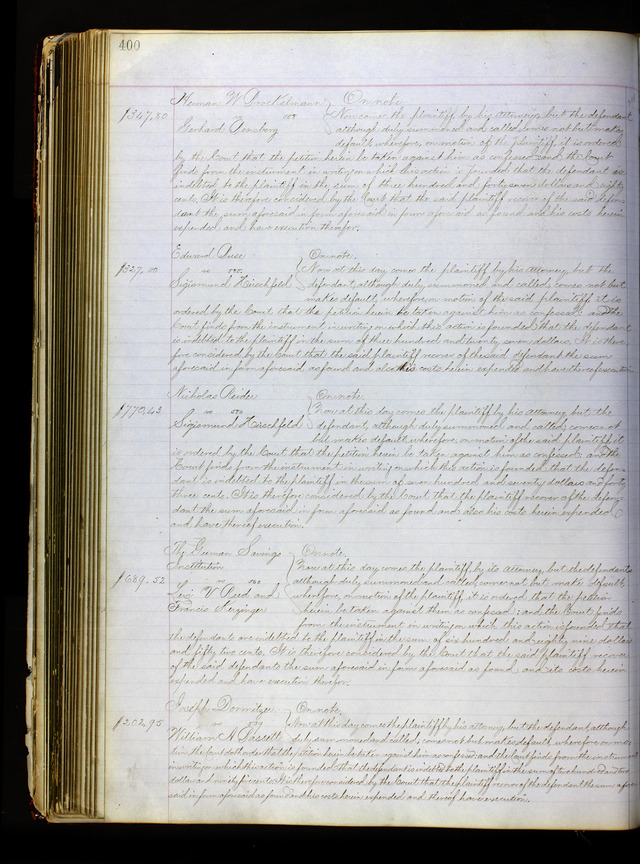 400
Herman W Brockelmann } On note,
$347.80 vs Now comes the plaintiff by his attorney, but the defendant
Gerhard although duly summoned and called, comes not but makes
default, wherefore, on motion of the plaintiff it is ordered
by the Court that the petition herein be taken against him as confessed and the Court
finds from the instrument in writing on which this action is founded that the defendant is
indebted to the plaintiff in the sum of three hundred and forty seven dollars and eighty
cents. It is therefore considered by the Court that the said plaintiff recover of the said defen-
dant the sum aforesaid in form aforesaid in form aforesaid as found and his costs herein
expended and have execution therefor.
Edward } On note.
$327.00 vs Now at this day comes the plaintiff by his attorney, but the
Sigismund Hirschfeld defendant, although duly summoned and called, comes not but
makes default, wherefore, on motion of the said plaintiff it is
ordered by the Court that the petition herein be taken against him as confessed and the
Court finds from the instrument in writing on which this action is founded that the defendant
is indebted to the plaintiff in the sum of three hundred and twenty seven dollars. It is there-
fore considered by the Court that the said plaintiff recover of the said defendant the sum
aforesaid in form aforesaid as found and also his costs herein expended and have therefor execution
Nicholas } On note.
$770.43 vs Now at this day comes the plaintiff by his attorney, but the
Sigismund Hirschfeld defendant, although duly summoned and called, comes not
but makes default wherefore, on motion of the said plaintiff it
is ordered by the Court that the petition herein be taken against him as confessed and the
Court finds from the instrument in writing on which this action is founded that the defen-
dant is indebted to the plaintiff in the sum of seven hundred and seventy dollars and forty
three cents. It is therefore considered by the Court that the plaintiff recover of the defen-
dant the sum aforesaid in form aforesaid as found and also his costs herein expended
and have thereof execution.
The German Savings } On note.
Institution Now at this day comes the plaintiff by its attorney, but the defendants
$689.52 vs although duly summoned and called, comes not but make default
Levi W Reed and wherefore, on motion of the plaintiff it is ordered that the petition
Francis herein be taken against them as confessed; and the Court finds
from the instrument in writing on which this action is founded that
the defendants are indebted to the plaintiff in the sum of six hundred and eighty nine dollars
and fifty two cents. It is therefore considered by the Court that the said plaintiff recover
of the said defendants the sum aforesaid in form aforesaid as found and its costs herein
expended and have execution therefor.
Joseph } On note,
$202.95 vs Now at this day comes the plaintiff by his attorney, but the defendant, although
William N duly summoned and called, comes not but makes default, wherefore on mo-
tion the Court orders that the petition herein be taken against him as confessed, and the Court finds from the instrument
in writing on which this action is founded, that the defendant is indebted to the plaintiff in the sum of two hundred and two
dollars and ninety five cents. It is therefore considered by the Court that the plaintiff recover of the defendant the sum afore-
said in form aforesaid as found and his costs herein expended and thereof have execution.